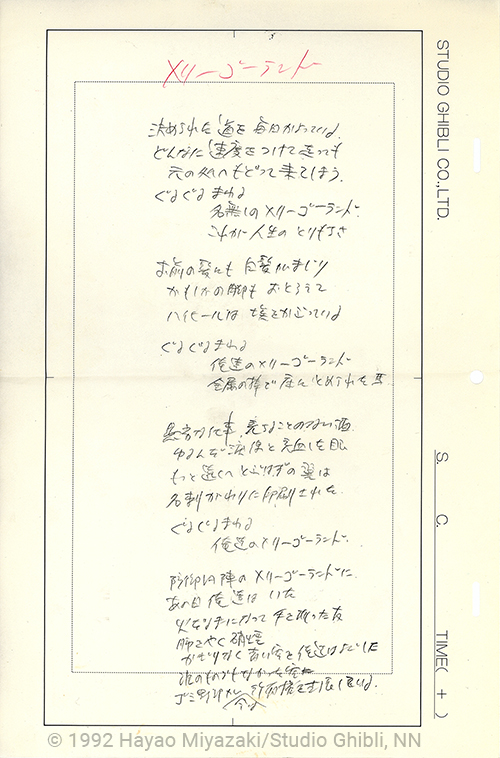 メリーゴーランド
決められた道を毎日かよっている
どんなに速度をつけて走っても
元の処へもどって来てしまう
ぐるぐるまわる
名無しのメリーゴーランド
これが人生の
お前の髪にも白髪がまじり
かもしかの脚もおとろえて
ハイヒールは埃をかぶっている
ぐるぐるまわる
俺達のメリーゴーランド
金属の棒で床にとめられた馬
な仕事、売ることのない酒
ゆるんだ涙腺と充血した眼
もっと遠くへとぶはずの翼は
名刺がわりに印刷された
ぐるぐるまわる
俺達のメリーゴーランド
防御円陣のメリーゴーランドに
あの日俺達はいた
になって手を振った友
硝煙
かぎりなく青い空を俺達は
STUDIO GHIBLI CO.,LTD.
S.
C.
TIME( + )
© 1992 Hayao Miyazaki/Studio Ghibli, NN